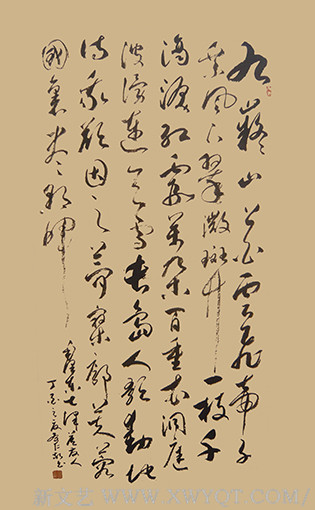 九嶷山上白云飞帝子
乘風下翠微斑竹一枝千
滴泪红霞萬朵百重衣洞庭
波涌连天雪长岛人歌動地
诗我欲因之梦寥廓芙蓉
國裏尽朝晖
毛泽东七律答友人
丁酉之夏
书
新文艺 WWW.XWYQT.COM